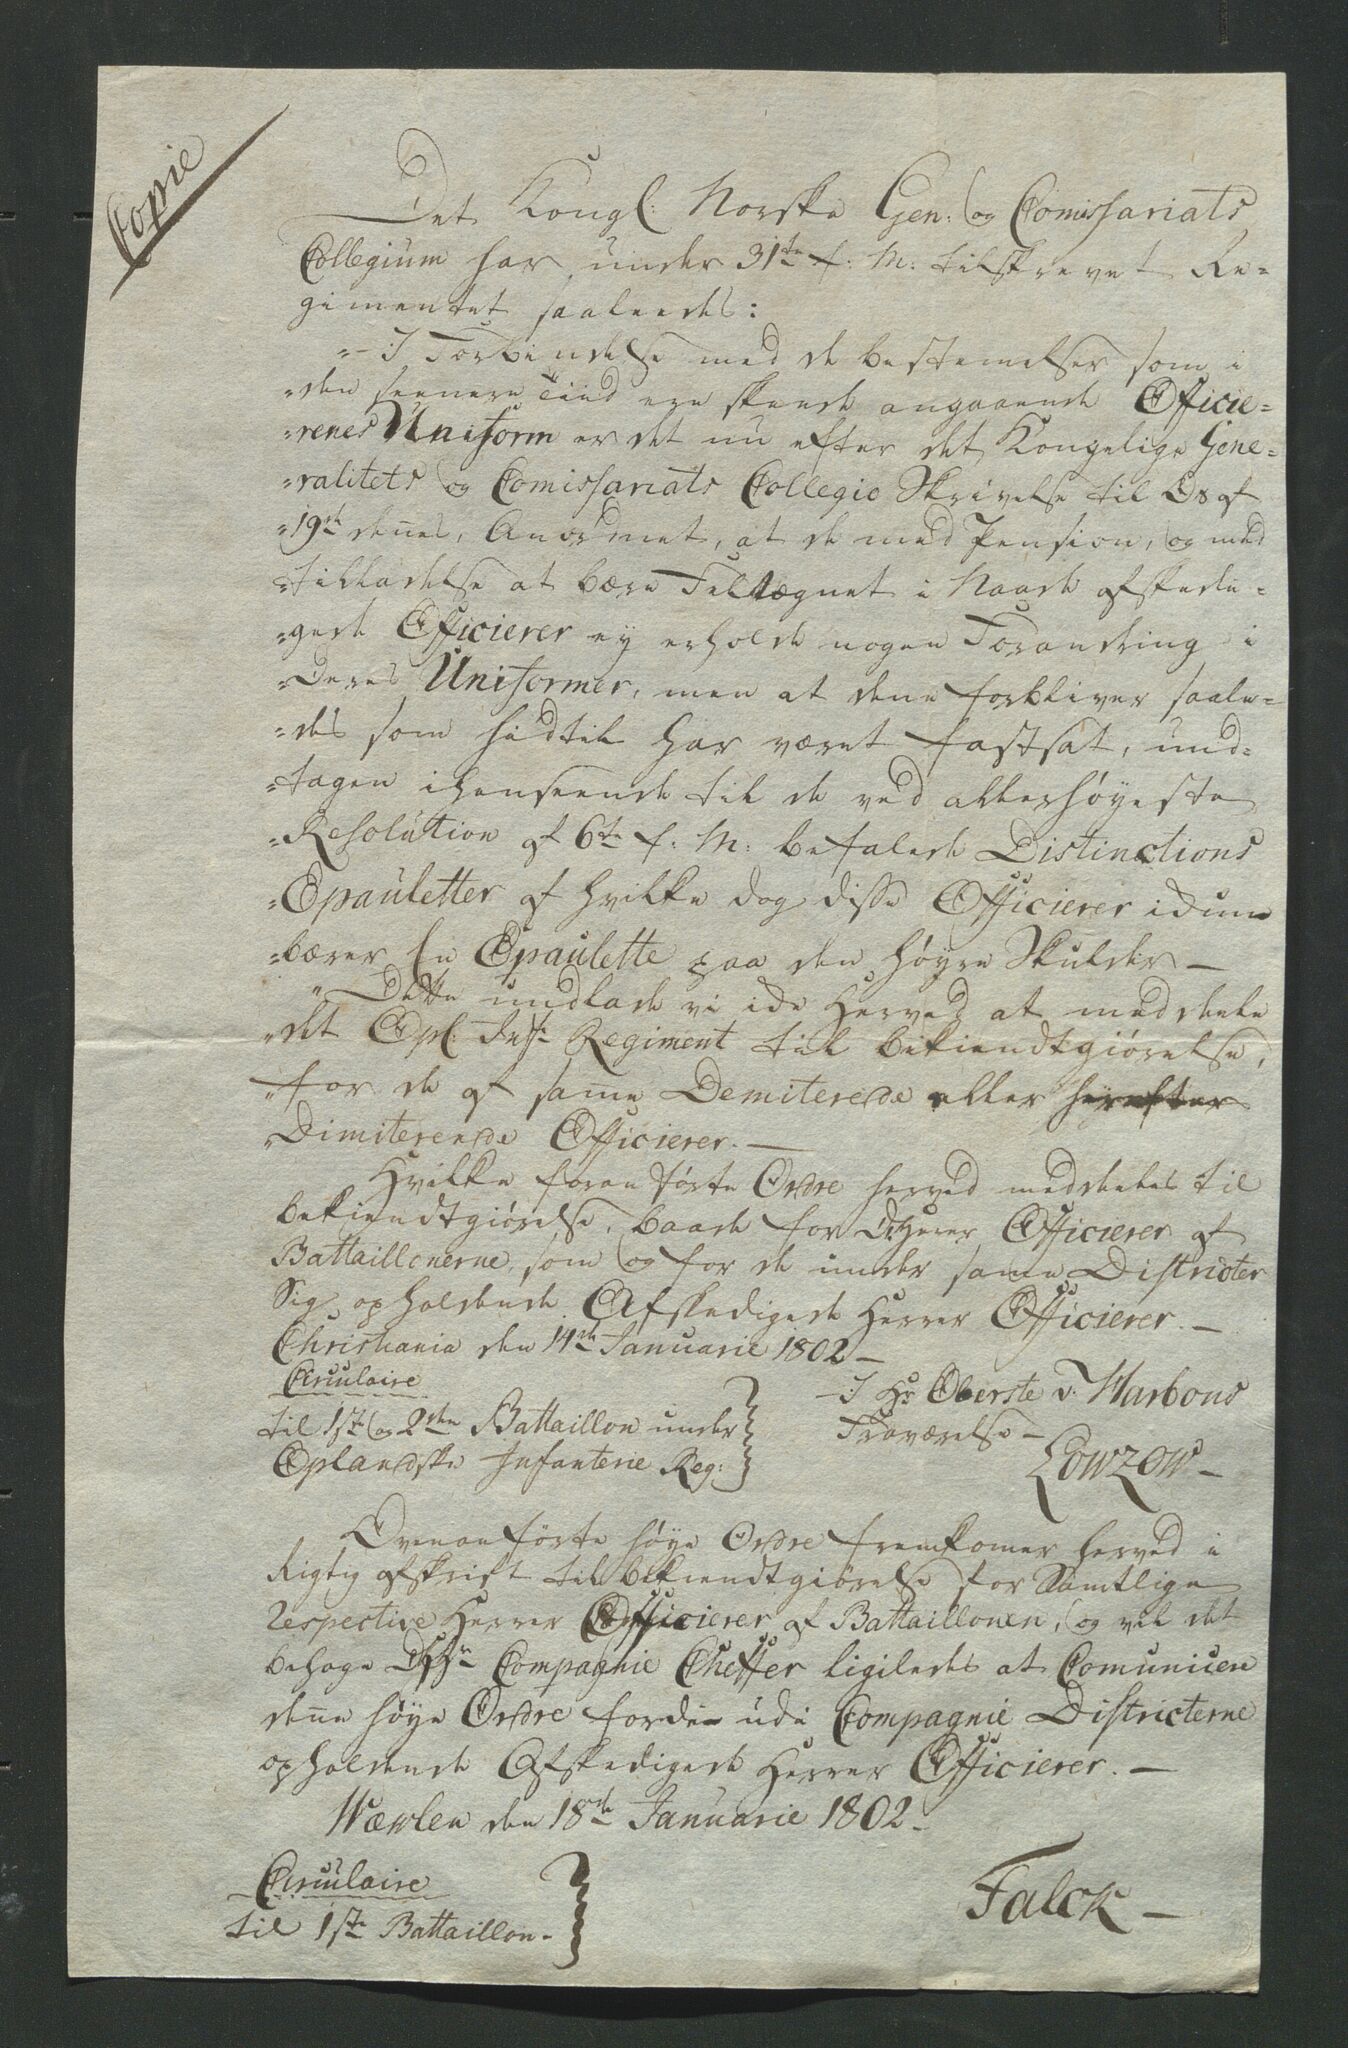 Copie
Det Kongl: Norske Gen: og Comissariats
Collegium har under 31te f: M: tilskrevet Re-
gimentet saaledes:
"I Forbindelse med de bestemelser som i
"den seenere Tiid ere skeede angaaende Officie-
"renes Uniform er det nu efter det Kongelige Gene-
"ralitets og Comissariats Collegie Skrivelse til Os af
"19de dennes, Anordnet, at de med Pension, og med
"tilladelse at bære Felttegnet i Naade afskedi-
"gede Officierer ey erholde nogen Forandring i
"Deres Uniformer, men at denne forbliver saale-
"des som hidtil har været fastsat, und-
"tagen i henseende til de ved allerhøyeste
"Resolution af 6te f: M: befalede Distinctions
"Epauletter af hvilke dog disse Officierer idun
"bærer En Epaulette paa den høyre Skulder –
"Dette undlade vi icke herved at meddeele
"det Opl: Inf: Regiment til bekiendtgiørelse,
"for de af same Demiterede eller herefter
"Dimiterende Officierer. –
Hvilke foranførte Ordre herved meddeeles til
bekiendtgiørelse, baade for DHerrer Officierer af
Battaillonerne, som og for de under same Districter
Sig opholdende Afskedigede Herrer Officierer. –
Christiania den 14de Januarie 1802 –
Circulaire
til 1ste og 2den Battaillon under
Oplandske Infanterie Reg:
I Hr Oberste v: Warbous
Fraværelse –
Lowzow –
Ovenanførte høye Ordre fremkomer herved i
Rigtig afskrift til bekiendtgiørelse for Samtlige
respective Herrer Officierer af Battaillonen, og vil det
behage DHHr Compagnie Cheffer ligeledes at Comunicere
denne høye Ordre for de udi Compagnie Districterne
opholdende Afskedigede Herrer Officierer. –
den 18de Januarie 1802 –
Circulaire
til 1ste Battaillon –
Falck –